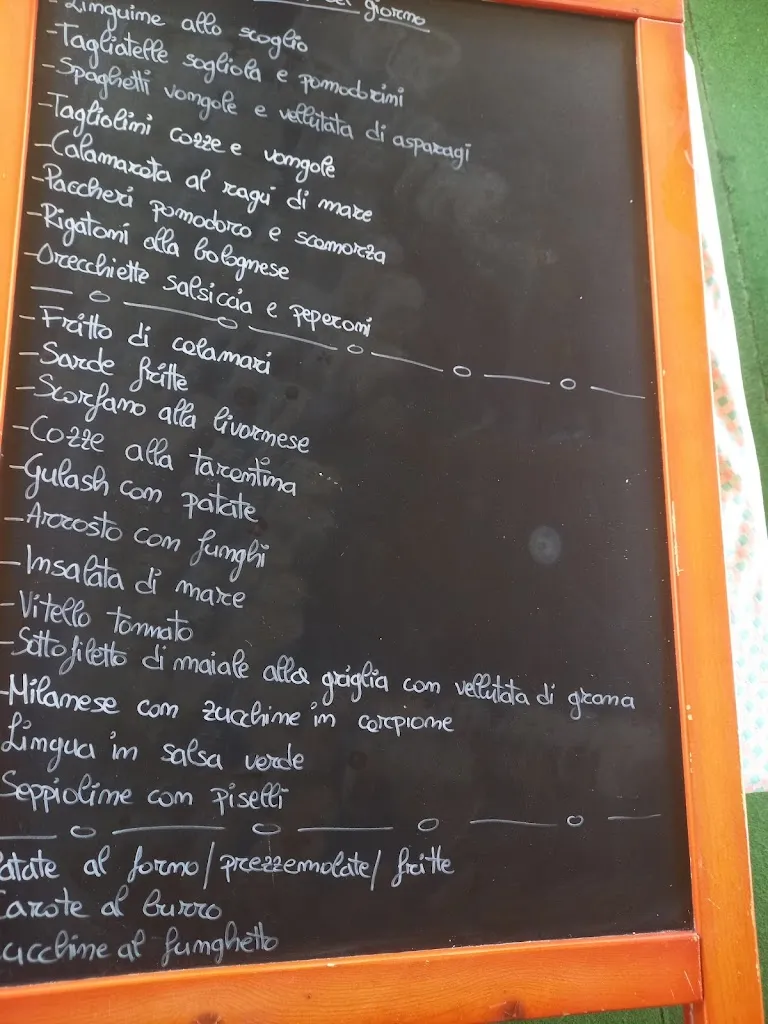 giorno
-Linguine allo scoglio
-Tagliatelle sogliola e pomodorini
-Spaghetti vongole e vellutata di asparagi
-Tagliolini cozze e vongole
-Calamarata al ragù di mare
-Paccheri pomodoro e scamorza
-Rigatoni alla bolognese
-Orecchiette salsiccia e peperoni
-Fritto di calamari
-Sarde fritte
-Scorfano alla livornese
-Cozze alla tarantina
-Gulash con patate
-Arrosto con funghi
-Insalata di mare
-Vitello tonnato
-Sottofiletto di maiale alla griglia con vellutata di grana
-Milanese con zucchine in carpione
Lingua in salsa verde
Seppioline con piselli
atate al forno/prezzemolate/fritte
Carote al burro
ucchine al funghetto